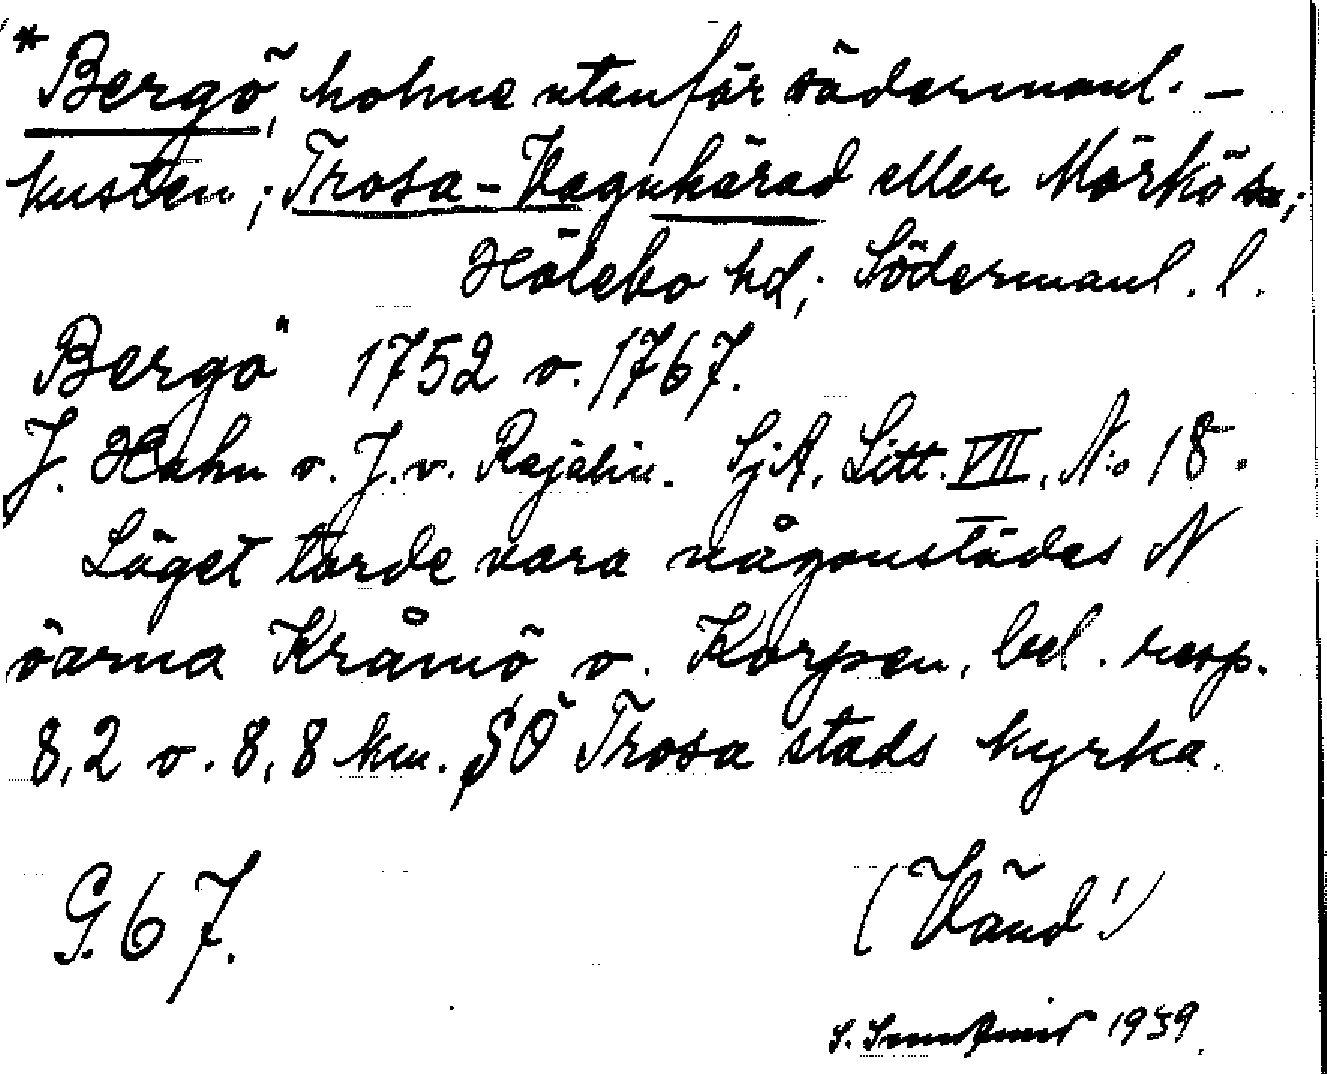 * Bergö, holme utanför södermanl. –
kusten; Trosa–Vagnhärad eller Mörkö sn;
Hölebo hd; Södermanl. l.
Bergö 1752 o. 1767.
J. Hahn o. J. v. Rajalin. SjA. Litt. VIII. N:o 18.
Läget torde vara någonstädes N
öarna Kråmö o. Korpen, bel. resp.
8,2 o. 8,8 km. SO Trosa stads kyrka.
G. 67.
(Vänd!)
S. 1939.